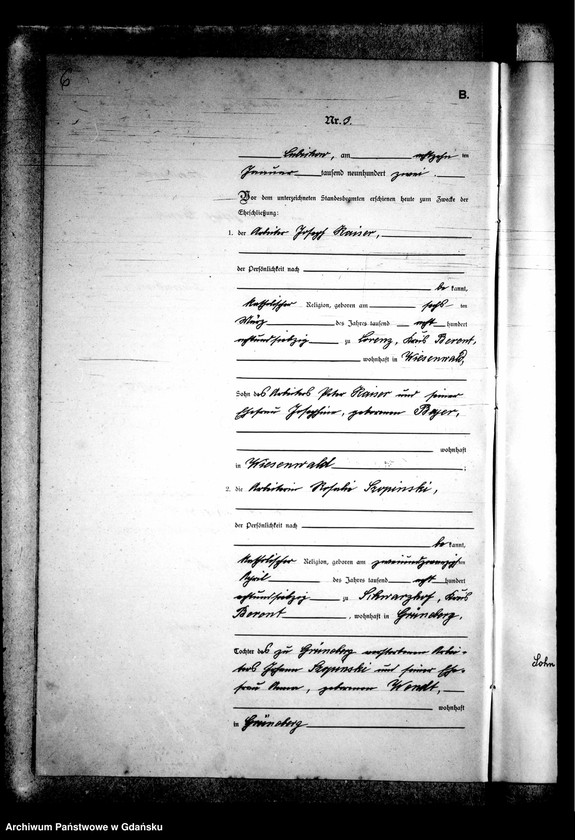 6
B.
Nr. 3.
am achtzehn ten
Januar tausend neunhundert zwei.
Vor dem unterzeichneten Standesbeamten erschienen heute zum Zwecke der
Eheschließung:
1. der Arbeiter Joseph Kaiser,
der Persönlichkeit nach
be kannt,
katholischer Religion, geboren am sechs ten
März des Jahres tausend acht hundert
achtundsiebzig zu Lorenz, Kreis Berent,
wohnhaft in Wiesenwald,
Sohn des Arbeiters Peter Kaiser und seiner
Ehefrau Josephine, geborenen Beyer,
wohnhaft
in Wiesenwald ;
2. die Arbeiterin Rosalie Szopinski,
der Persönlichkeit nach
be kannt,
katholischer Religion, geboren am zweiundzwanzigsten
April des Jahres tausend acht hundert
achtundsiebzig zu Schwarzhof, Kreis
Berent, wohnhaft in Grüneberg,
Tochter des zu Grüneberg verstorbenen Arbei-
ters Johann Szopinski und seiner Ehe-
frau Anna, geborenen Wendt,
wohnhaft
in Grüneberg
Sohn
Archiwum Państwowe w Gdańsku